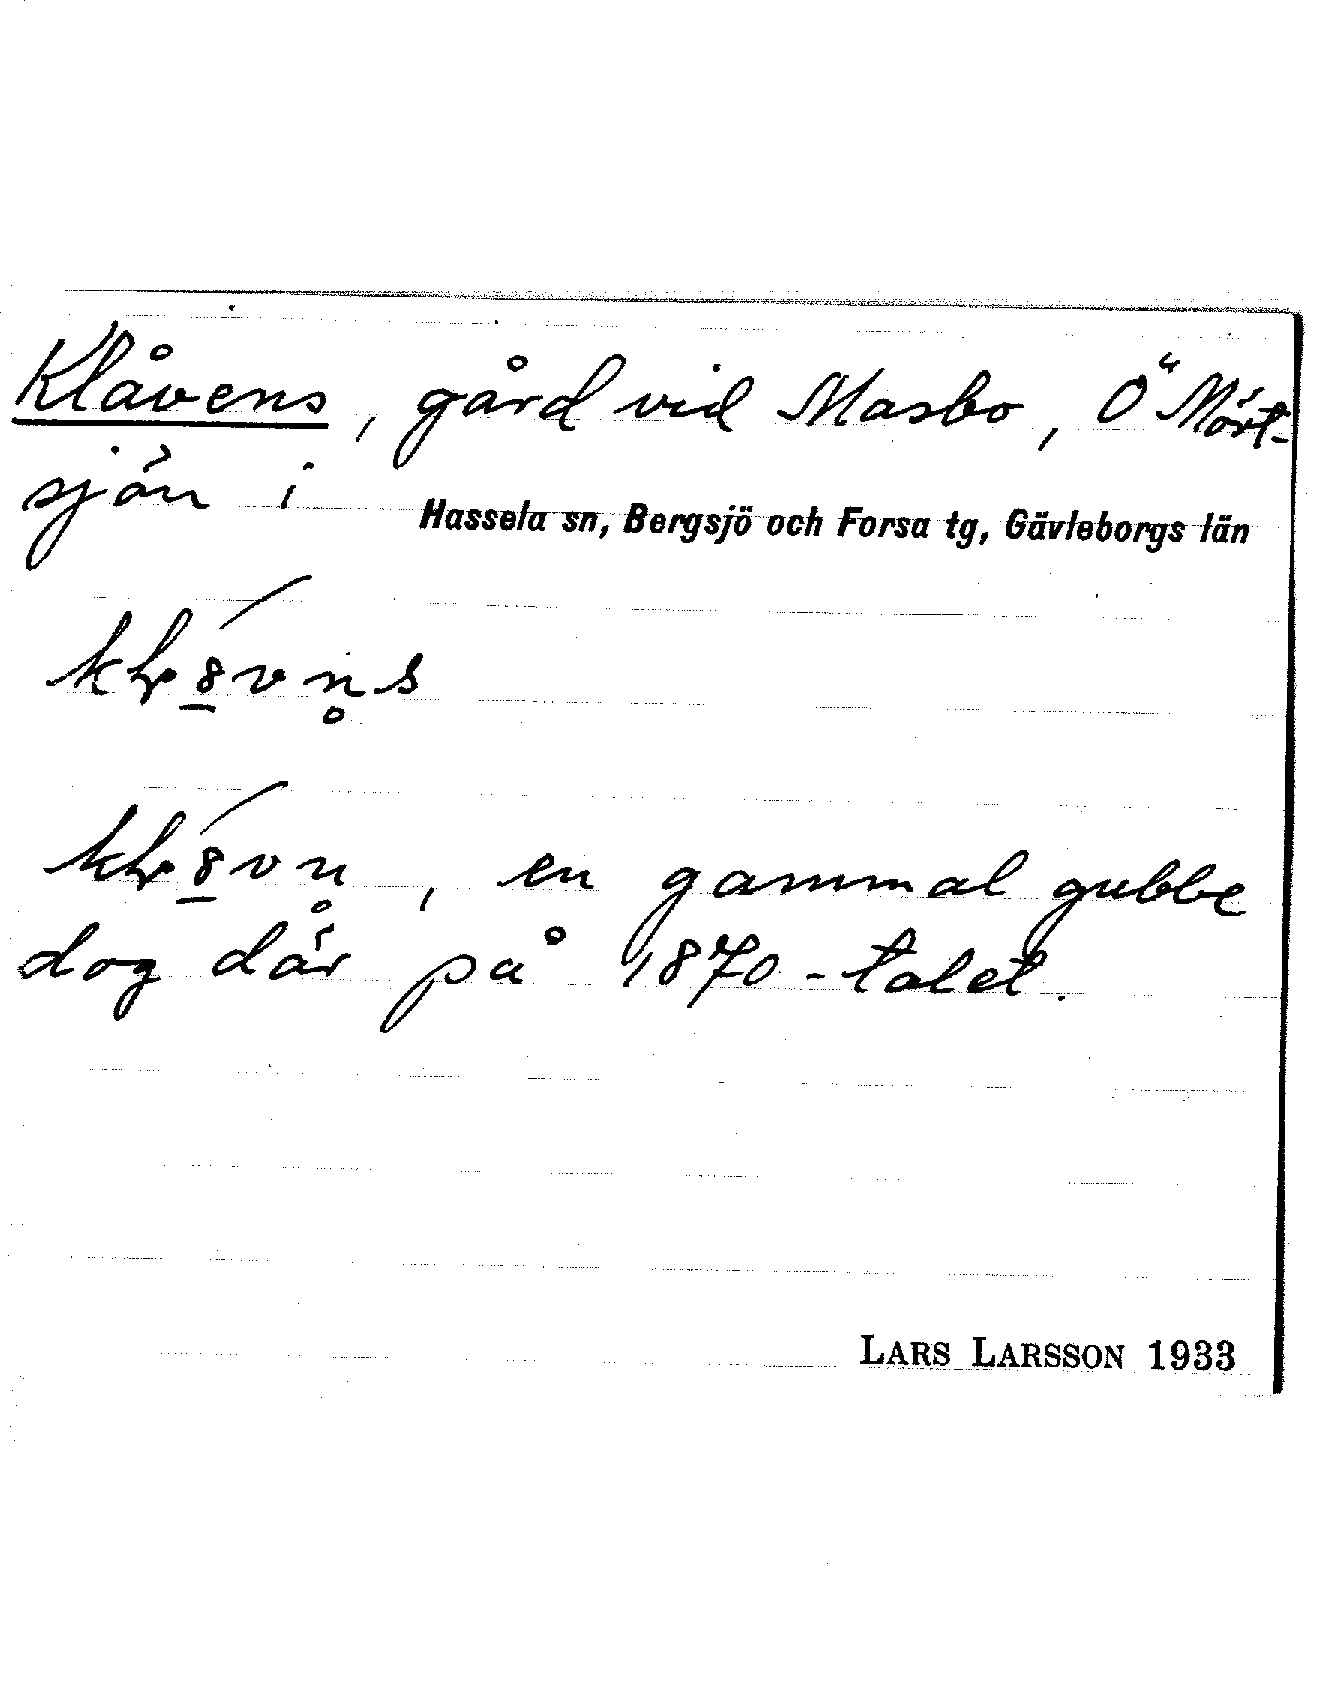 Klåvens, gård vid Masbo, Ö Mört-
sjön i Hassela sn, Bergsjö och Forsa tg, Gävleborgs län
en gammal gubbe
dog där på 1870-talet.
LARS LARSSON 1933